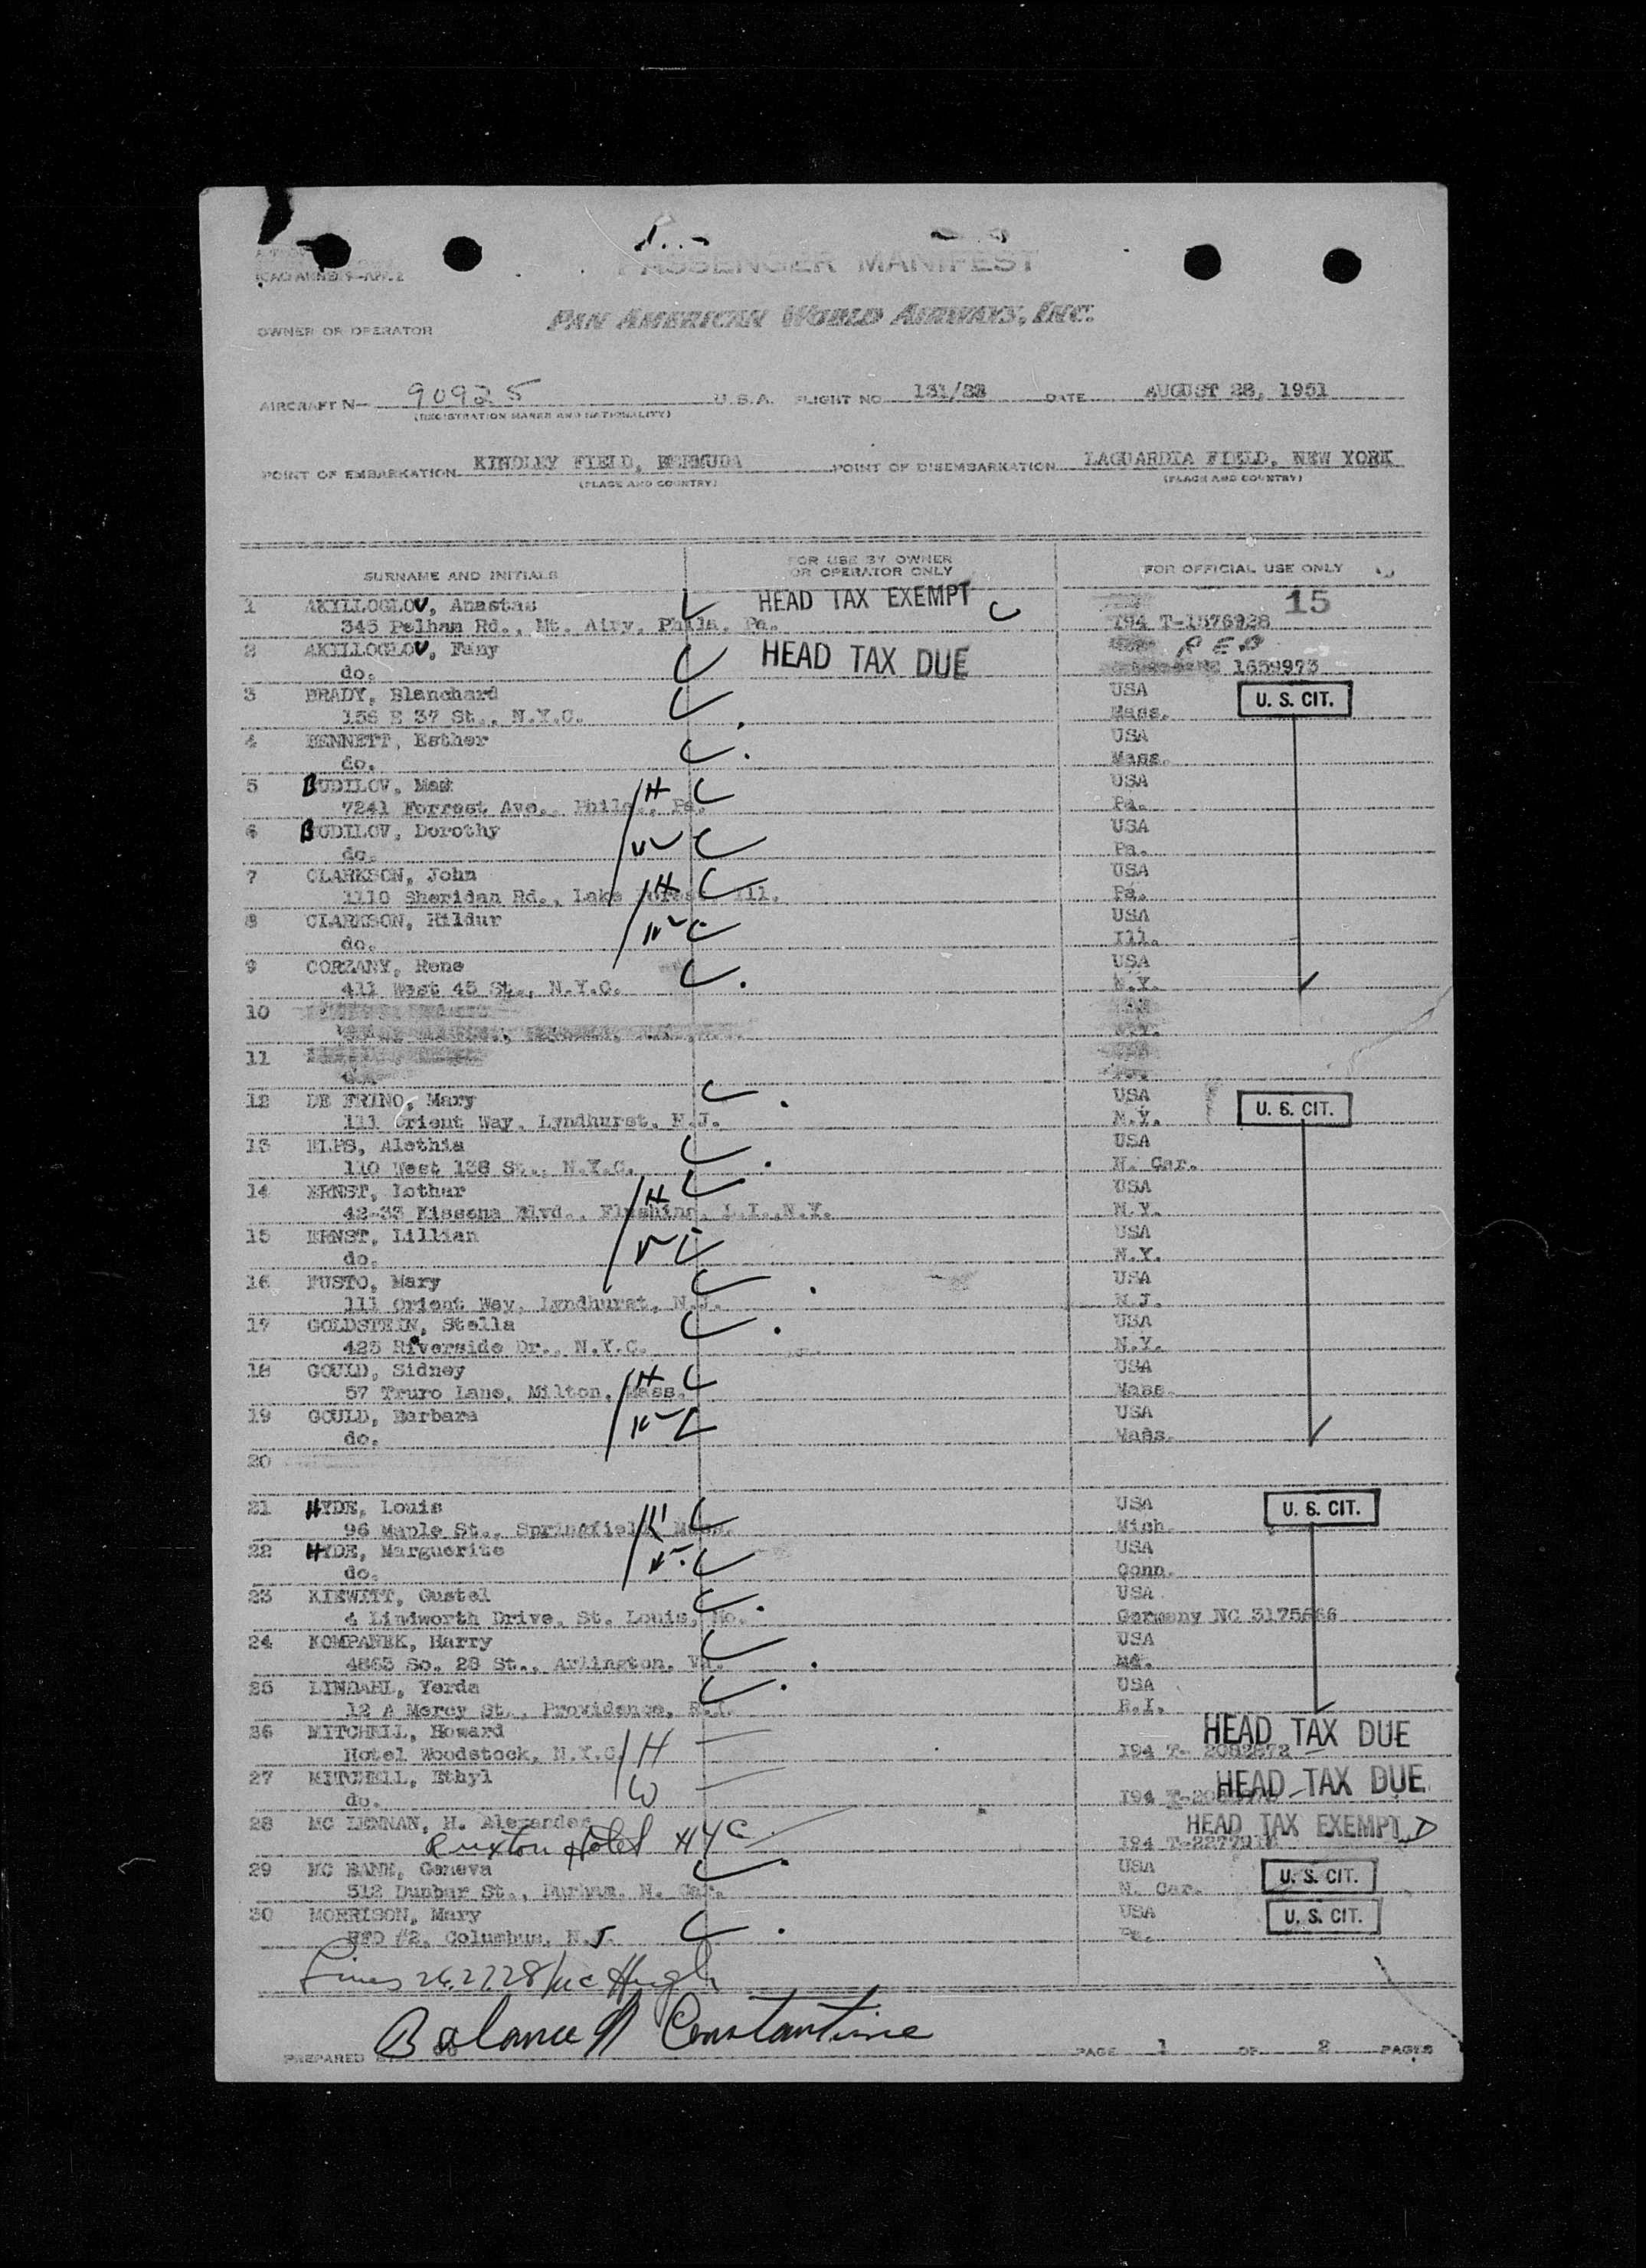 (ICAO ANNEX 9-APP. 2
PASSENGER MANIFEST
OWNER OR OPERATOR PAN AMERICAN WORLD AIRWAYS, INC.
AIRCRAFT N- 90925 U.S.A. FLIGHT NO 131/28 DATE AUGUST 28, 1951
(REGISTRATION MARKS AND NATIONALITY)
POINT OF EMBARKATION KINDLEY FIELD, BERMUDA POINT OF DISEMBARKATION LAGUARDIA FIELD, NEW YORK
(PLACE AND COUNTRY) (PLACE AND COUNTRY)
SURNAME AND INITIALS FOR USE BY OWNER OR OPERATOR ONLY FOR OFFICIAL USE ONLY
1 AKYLLOGLOV, Anastas HEAD TAX EXEMPT 15
345 Pelham Rd., Mt. Airy, Phila. Pa. I94 T-1576928
2 AKILLOGLOV, Fany HEAD TAX DUE
do. 1659973
3 BRADY, Blanchard USA U. S. CIT.
156 E 37 St., N.Y.C. Mass.
4 BENNETT, Esther USA
do. Mass.
5 BUDILOV, Max H USA
7241 Forrest Ave., Phila., Pa. Pa.
6 BUDILOV, Dorothy USA
do. Pa.
7 CLARKSON, John USA
1110 Sheridan Rd., Lake Forest Ill. H Pa.
8 CLARKSON, Hildur USA
do. Ill.
9 CORZANY, Rene USA
411 West 45 St., N.Y.C. N.Y.
10
N.Y.
11
12 DE FRINO, Mary USA
111 Orient Way, Lyndhurst, N.J. N.Y. U. S. CIT.
13 ELPS, Alethia USA
110 West 138 St., N.Y.C. N. Car.
14 ERNST, Lothar H USA
42-33 Kissena Blvd., Flushing, L.I.,N.Y. N.Y.
15 ERNST, Lillian USA
do. N.Y.
16 FUSTO, Mary USA
111 Orient Way, Lyndhurst, N.J. N.J.
17 GOLDSTEIN, Stella USA
425 Riverside Dr., N.Y.C. N.Y.
18 GOULD, Sidney H USA
57 Truro Lane, Milton, Mass. Mass.
19 GOULD, Barbara USA
do. Mass.
20
21 HYDE, Louis USA U. S. CIT.
96 Maple St., Springfield, Mass. Mich.
22 HYDE, Marguerite USA
do. Conn.
23 KIEWITT, Gustel USA
4 Lindworth Drive, St. Louis, Mo. Germany NC 3175666
24 KOMPANEK, Harry USA
4863 So. 28 St., Arlington, Va. Md.
25 LINDAHL, Yerda USA
12 A Mercy St., Providence, R.I. R.I.
26 MITCHELL, Howard HEAD TAX DUE
Hotel Woodstock, N.Y.C. H I94 T- 2082872
27 MITCHELL, Ethyl HEAD TAX DUE
do. W I94
28 MC LENNAN, H. Alexander HEAD TAX EXEMPT
Ruxton Hotel NYC I94
29 MC BANE, Geneva USA U. S. CIT.
512 Dunbar St., Durham, N. Car. N. Car.
30 MORRISON, Mary USA U. S. CIT.
RFD #2, Columbus, N.J. Pa.
Lines 26,27,28 McHugh
Balance Constantine
PREPARED BY PAGE 1 OF 2 PAGES